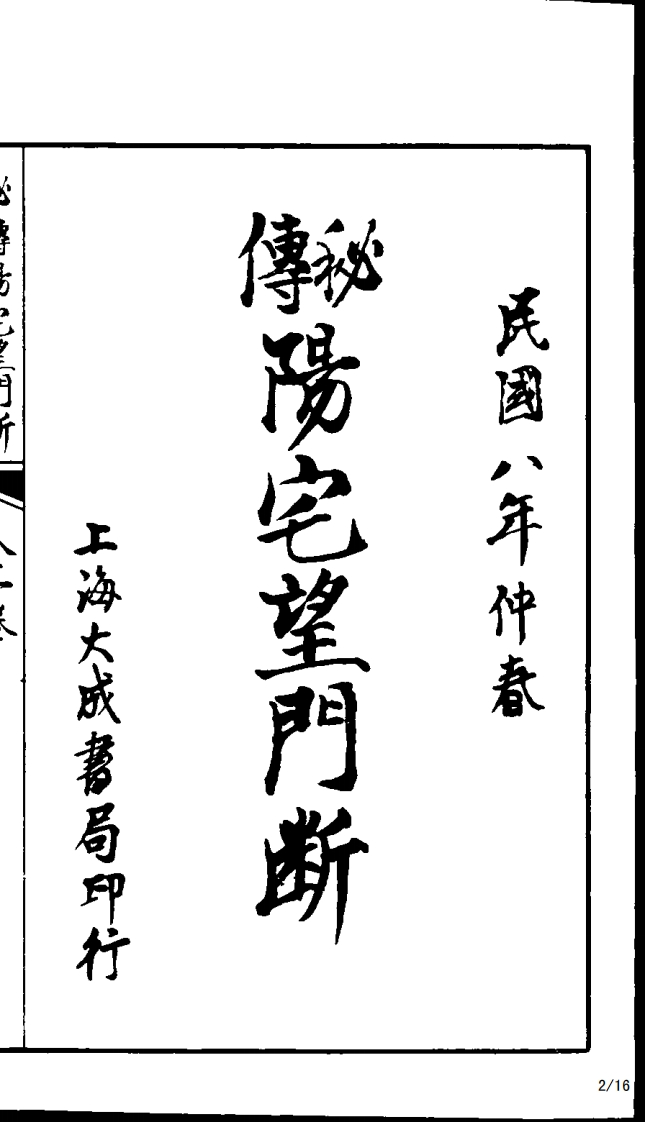 民國八年仲春
秘傳
陽宅望門断
上海大成書局印行
秘傳陽宅望門断
2/16